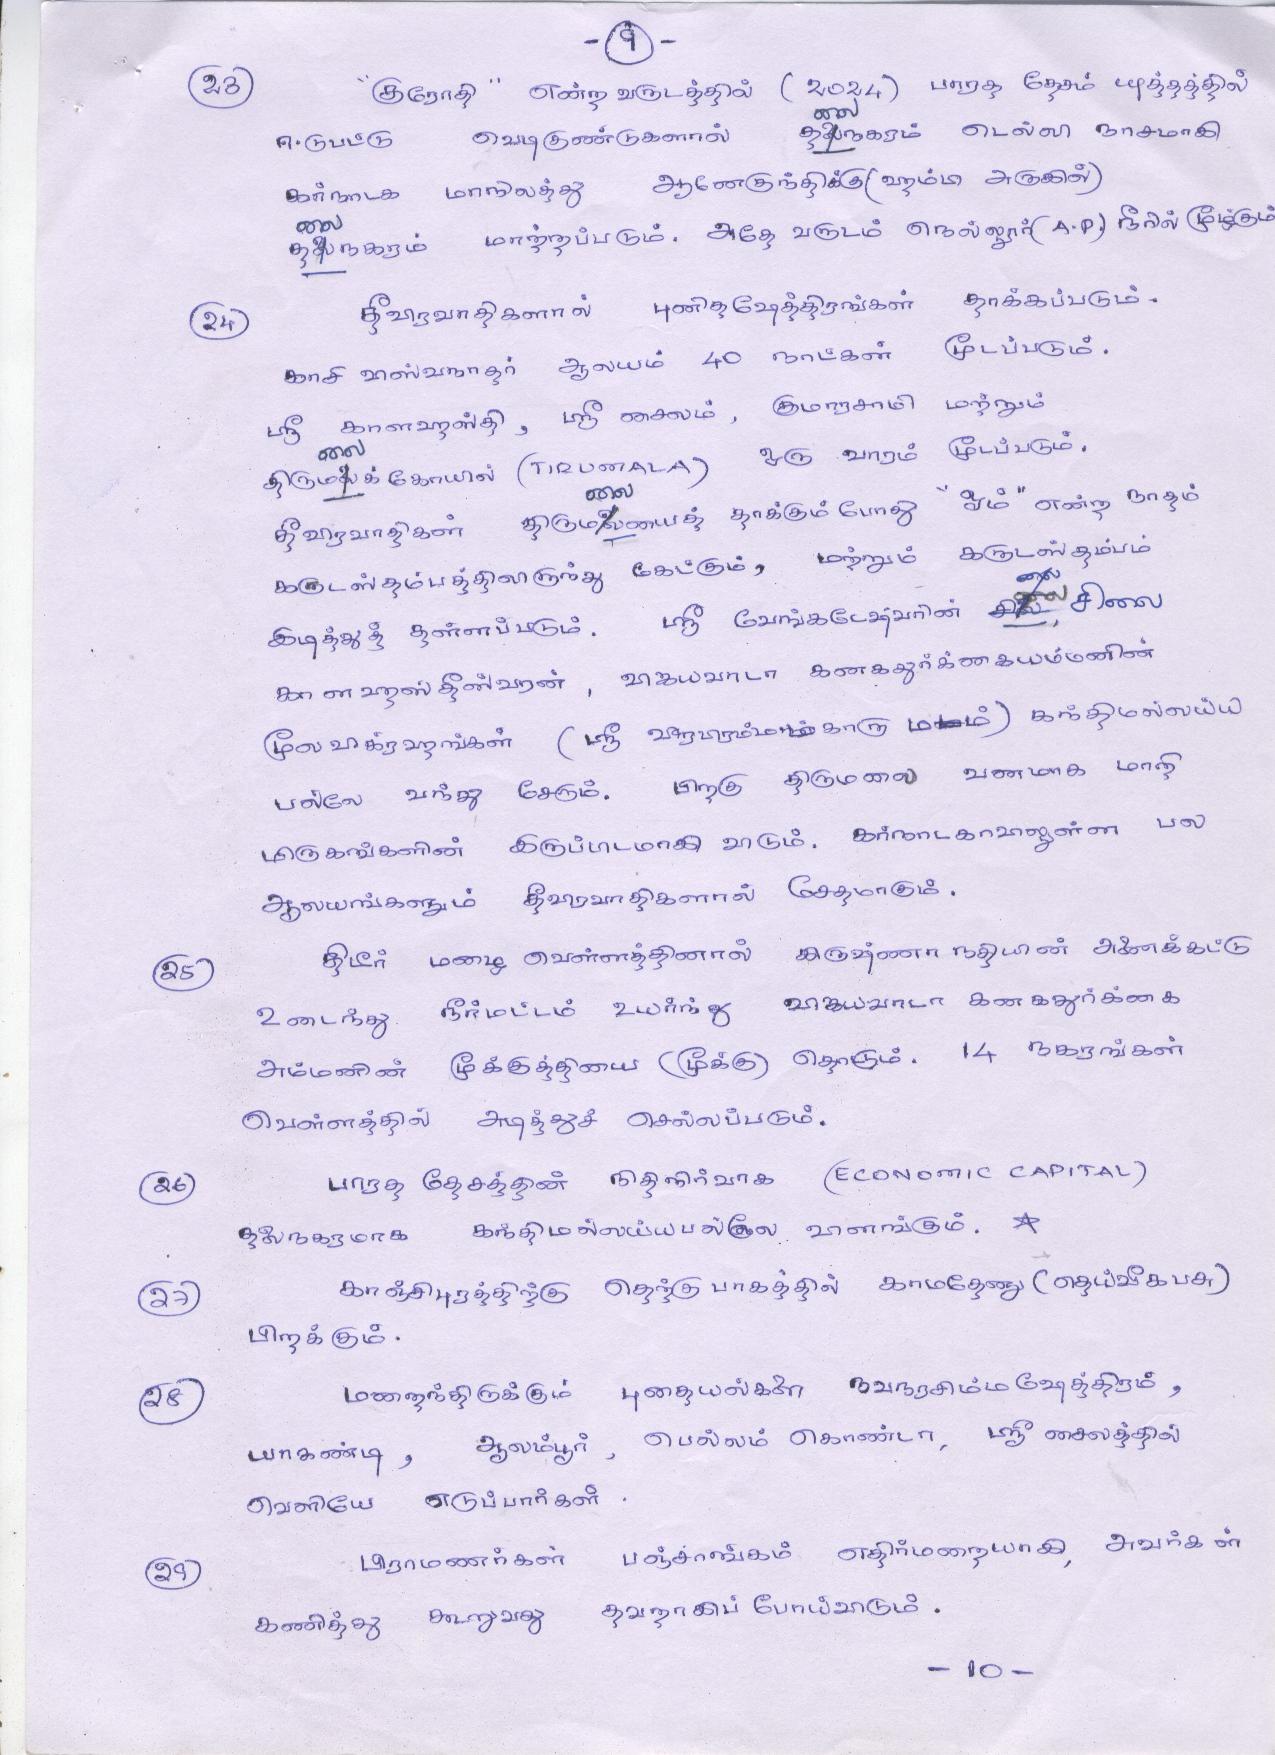 - 9 -
23 "குரோதி" என்ற வருடத்தில் (2024) பாரத தேசம் யுத்தத்தில்
ஈடுபட்டு வெடிகுண்டுகளால் தலைநகரம் டெல்லி நாசமாகி
கர்நாடக மாநிலத்து ஆனேகுந்திக்கு (ஹம்பி அருகில்)
தலைநகரம் மாற்றப்படும். அதே வருடம் நெல்லூர் (A.P.) நீரில் மூழ்கும்
24 தீவிரவாதிகளால் புனித ஷேத்திரங்கள் தாக்கப்படும்.
காசி விஸ்வநாதர் ஆலயம் 40 நாட்கள் மூடப்படும்.
ஸ்ரீ காளஹஸ்தி, ஸ்ரீ சைலம், குமாரசாமி மற்றும்
திருமலைக் கோயில் (TIRUMALA) ஒரு வாரம் மூடப்படும்.
தீவிரவாதிகள் திருமலையைத் தாக்கும்போது "ஓம்" என்ற நாதம்
கருடஸ்தம்பத்திலிருந்து கேட்கும், மற்றும் கருடஸ்தம்பம்
இடித்துத் தள்ளப்படும். ஸ்ரீ வேங்கடேஷ்வரின் சிலை
காளஹஸ்தீஸ்வரன், விஜயவாடா கனகதுர்க்கையம்மனின்
மூலவிக்ரஹங்கள் (ஸ்ரீ வீரபிரம்மம்காரு மடம்) கந்திமல்லய்ய
பல்லே வந்து சேரும். பிறகு திருமலை வனமாக மாறி
மிருகங்களின் இருப்பிடமாகி விடும். கர்நாடகாவிலுள்ள பல
ஆலயங்களும் தீவிரவாதிகளால் சேதமாகும்.
25 திடீர் மழை வெள்ளத்தினால் கிருஷ்ணா நதியின் அணைக்கட்டு
உடைந்து நீர்மட்டம் உயர்ந்து விஜயவாடா கனகதுர்க்கை
அம்மனின் மூக்குத்தியை (மூக்கு) தொடும். 14 நகரங்கள்
வெள்ளத்தில் அடித்துச் செல்லப்படும்.
26 பாரத தேசத்தின் நிதிநிர்வாக (ECONOMIC CAPITAL)
தலைநகரமாக கந்திமல்லய்யபல்லே விளங்கும். ☆
27 காஞ்சிபுரத்திற்கு தெற்கு பாகத்தில் காமதேனு (தெய்வீக பசு)
பிறக்கும்.
28 மறைந்திருக்கும் புதையல்களை நவநரசிம்ம ஷேத்திரம்,
யாகண்டி, ஆலம்பூர், பெல்லம் கொண்டா, ஸ்ரீ சைலத்தில்
வெளியே எடுப்பார்கள்.
29 பிராமணர்கள் பஞ்சாங்கம் எதிர்மறையாகி, அவர்கள்
கணித்து கூறுவது தவறாகிப் போய்விடும்.
- 10 -